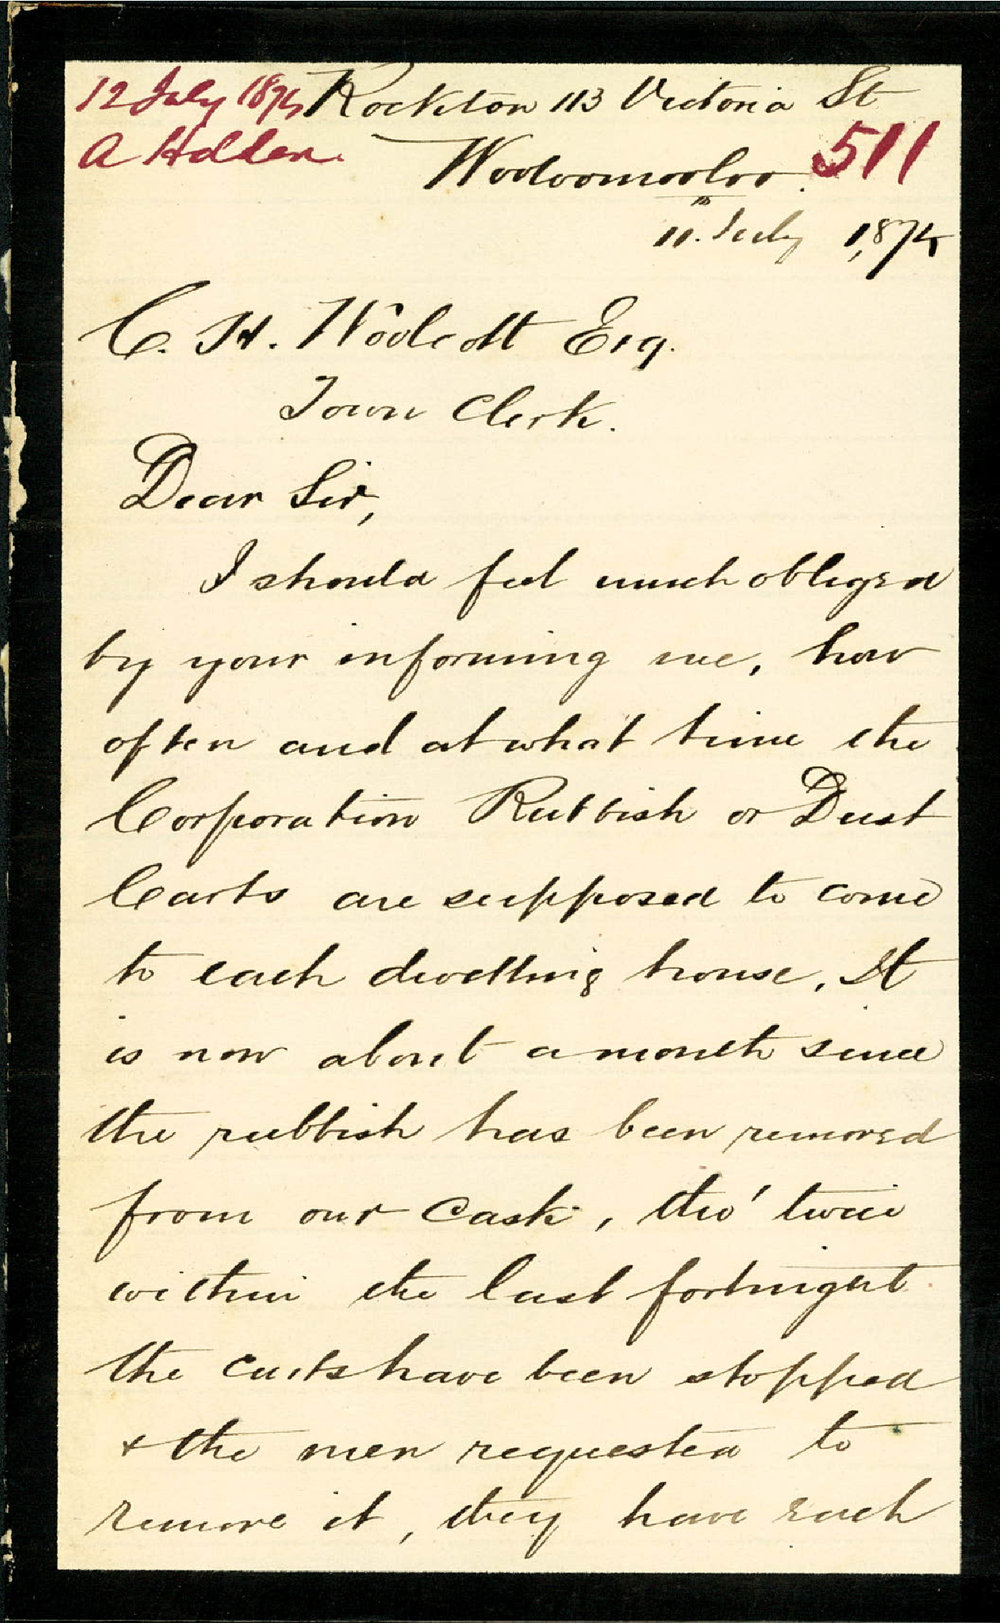 12 July 1875 Rockton 113 Victoria St
A Holden. Wooloomooloo. 511
11th July 1,875
C. H. Woolcott Esq.
Town Clerk.
Dear Sir,
I should feel much obliged
by your informing me, how
often and at what time the
Corporation Rubbish or Dust
Carts are supposed to come
to each dwelling house. It
is now about a month since
the rubbish has been removed
from our cask, tho' twice
within the last fortnight
the carts have been stopped
& the men requested to
remove it, they have each